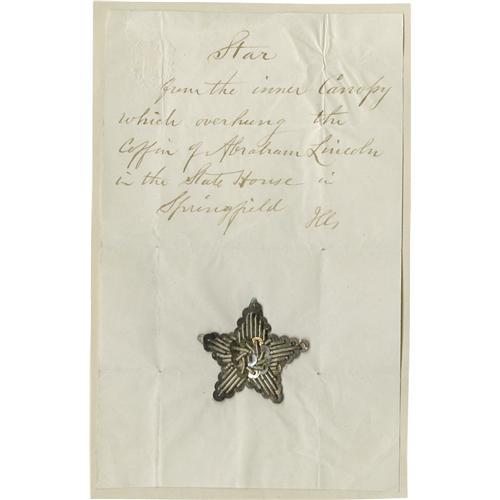 Star
from the inner Canopy
which overhung the
Coffin of Abraham Lincoln
in the State House in
Springfield Ills